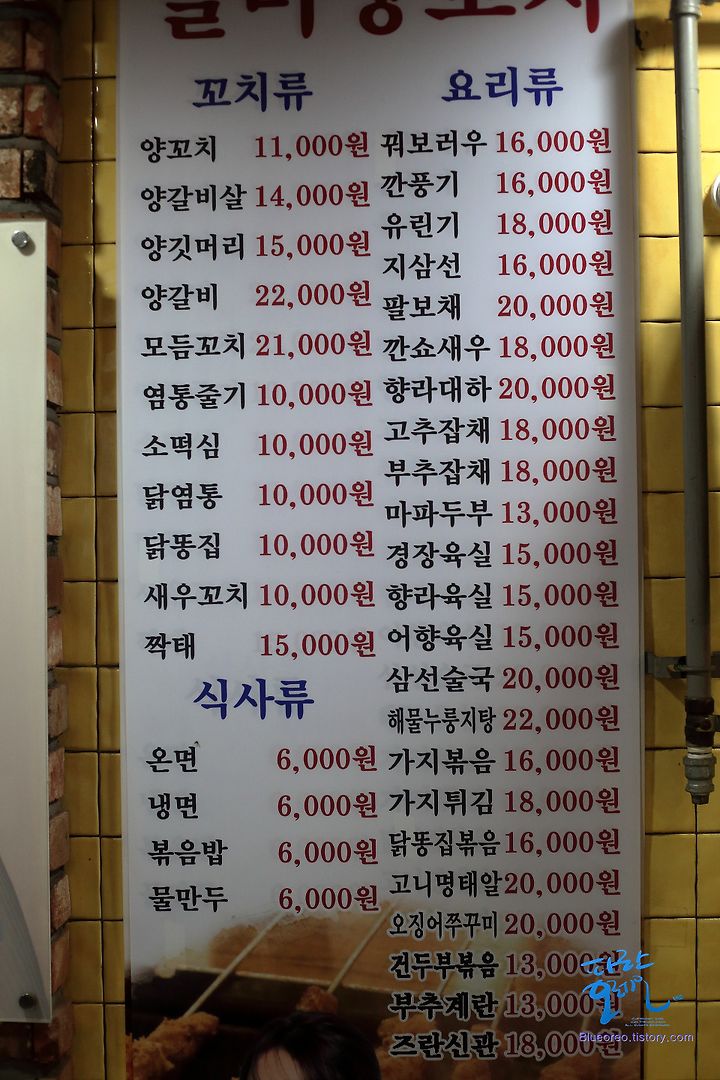 꼬치류
양꼬치 11,000원
양갈비살 14,000원
양깃머리 15,000원
양갈비 22,000원
모듬꼬치 21,000원
염통줄기 10,000원
소떡심 10,000원
닭염통 10,000원
닭똥집 10,000원
새우꼬치 10,000원
짝태 15,000원
식사류
온면 6,000원
냉면 6,000원
볶음밥 6,000원
물만두 6,000원
요리류
꿔보러우 16,000원
깐풍기 16,000원
유린기 18,000원
지삼선 16,000원
팔보채 20,000원
깐쇼새우 18,000원
향라대하 20,000원
고추잡채 18,000원
부추잡채 18,000원
마파두부 13,000원
경장육실 15,000원
향라육실 15,000원
어향육실 15,000원
삼선술국 20,000원
해물누룽지탕 22,000원
가지볶음 16,000원
가지튀김 18,000원
닭똥집볶음 16,000원
고니명태알 20,000원
오징어쭈꾸미 20,000원
건두부볶음 13,000원
부추계란 13,000원
즈란신관 18,000원
Blueoreo.tistory.com